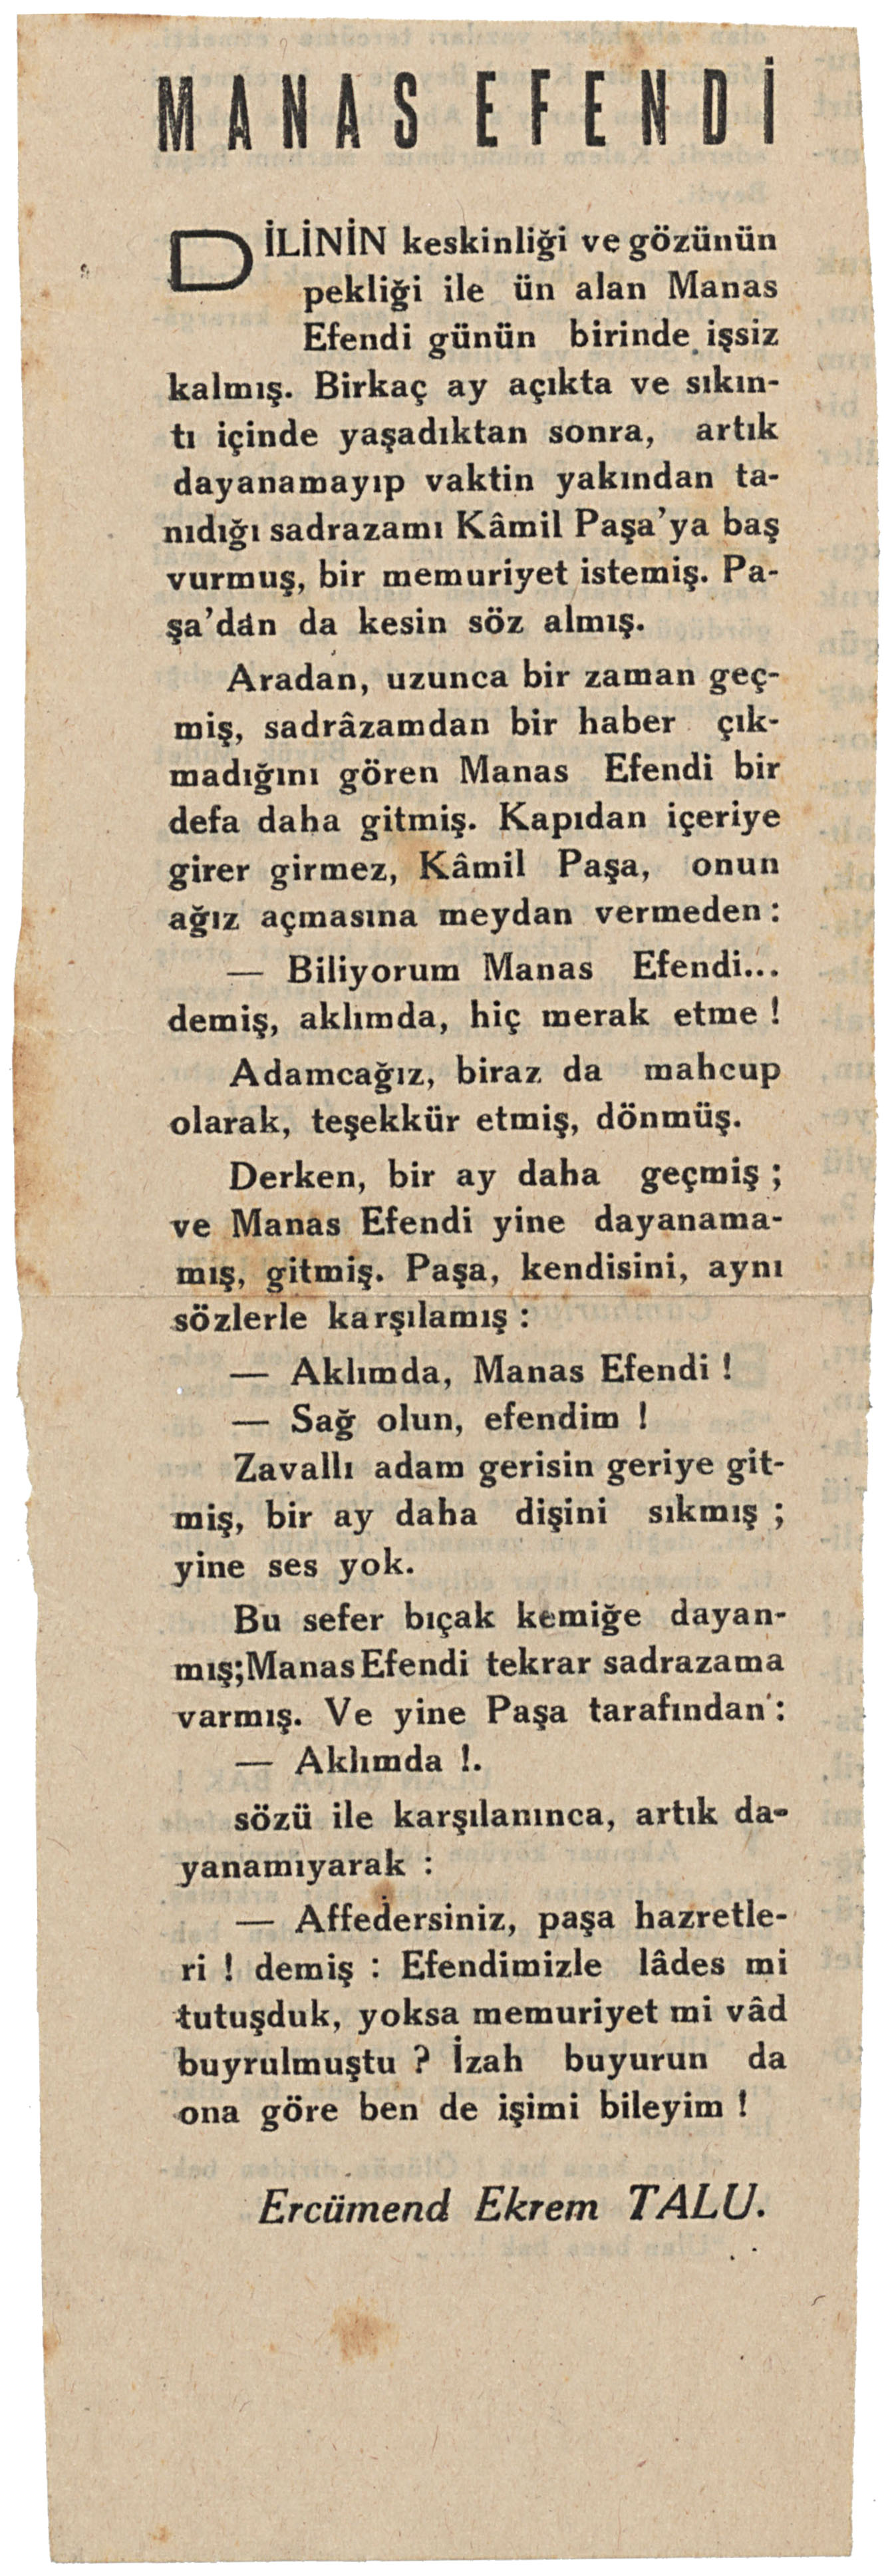 MANAS EFENDİ
DİLİNİN keskinliği ve gözünün
pekliği ile ün alan Manas
Efendi günün birinde işsiz
kalmış. Birkaç ay açıkta ve sıkın-
tı içinde yaşadıktan sonra, artık
dayanamayıp vaktin yakından ta-
nıdığı sadrazamı Kâmil Paşa'ya baş
vurmuş, bir memuriyet istemiş. Pa-
şa'dan da kesin söz almış.
Aradan, uzunca bir zaman geç-
miş, sadrâzamdan bir haber çık-
madığını gören Manas Efendi bir
defa daha gitmiş. Kapıdan içeriye
girer girmez, Kâmil Paşa, onun
ağız açmasına meydan vermeden :
— Biliyorum Manas Efendi...
demiş, aklımda, hiç merak etme !
Adamcağız, biraz da mahcup
olarak, teşekkür etmiş, dönmüş.
Derken, bir ay daha geçmiş ;
ve Manas Efendi yine dayanama-
mış, gitmiş. Paşa, kendisini, aynı
sözlerle karşılamış :
— Aklımda, Manas Efendi !
— Sağ olun, efendim !
Zavallı adam gerisin geriye git-
miş, bir ay daha dişini sıkmış ;
yine ses yok.
Bu sefer bıçak kemiğe dayan-
mış;Manas Efendi tekrar sadrazama
varmış. Ve yine Paşa tarafından :
— Aklımda !.
sözü ile karşılanınca, artık da-
yanamıyarak :
— Affedersiniz, paşa hazretle-
ri ! demiş : Efendimizle lâdes mi
tutuşduk, yoksa memuriyet mi vâd
buyrulmuştu ? İzah buyurun da
ona göre ben de işimi bileyim !
Ercümend Ekrem TALU.